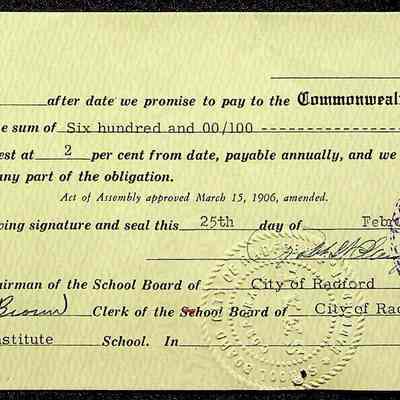 after date we promise to pay to the Commonweal
e sum of Six hundred and 00/100
est at 2 per cent from date, payable annually, and we
any part of the obligation.
Act of Assembly approved March 15, 1906, amended.
ving signature and seal this 25th day of Febr
airman of the School Board of City of Redford
Brown Clerk of the School Board of City of Rad
nstitute School. In